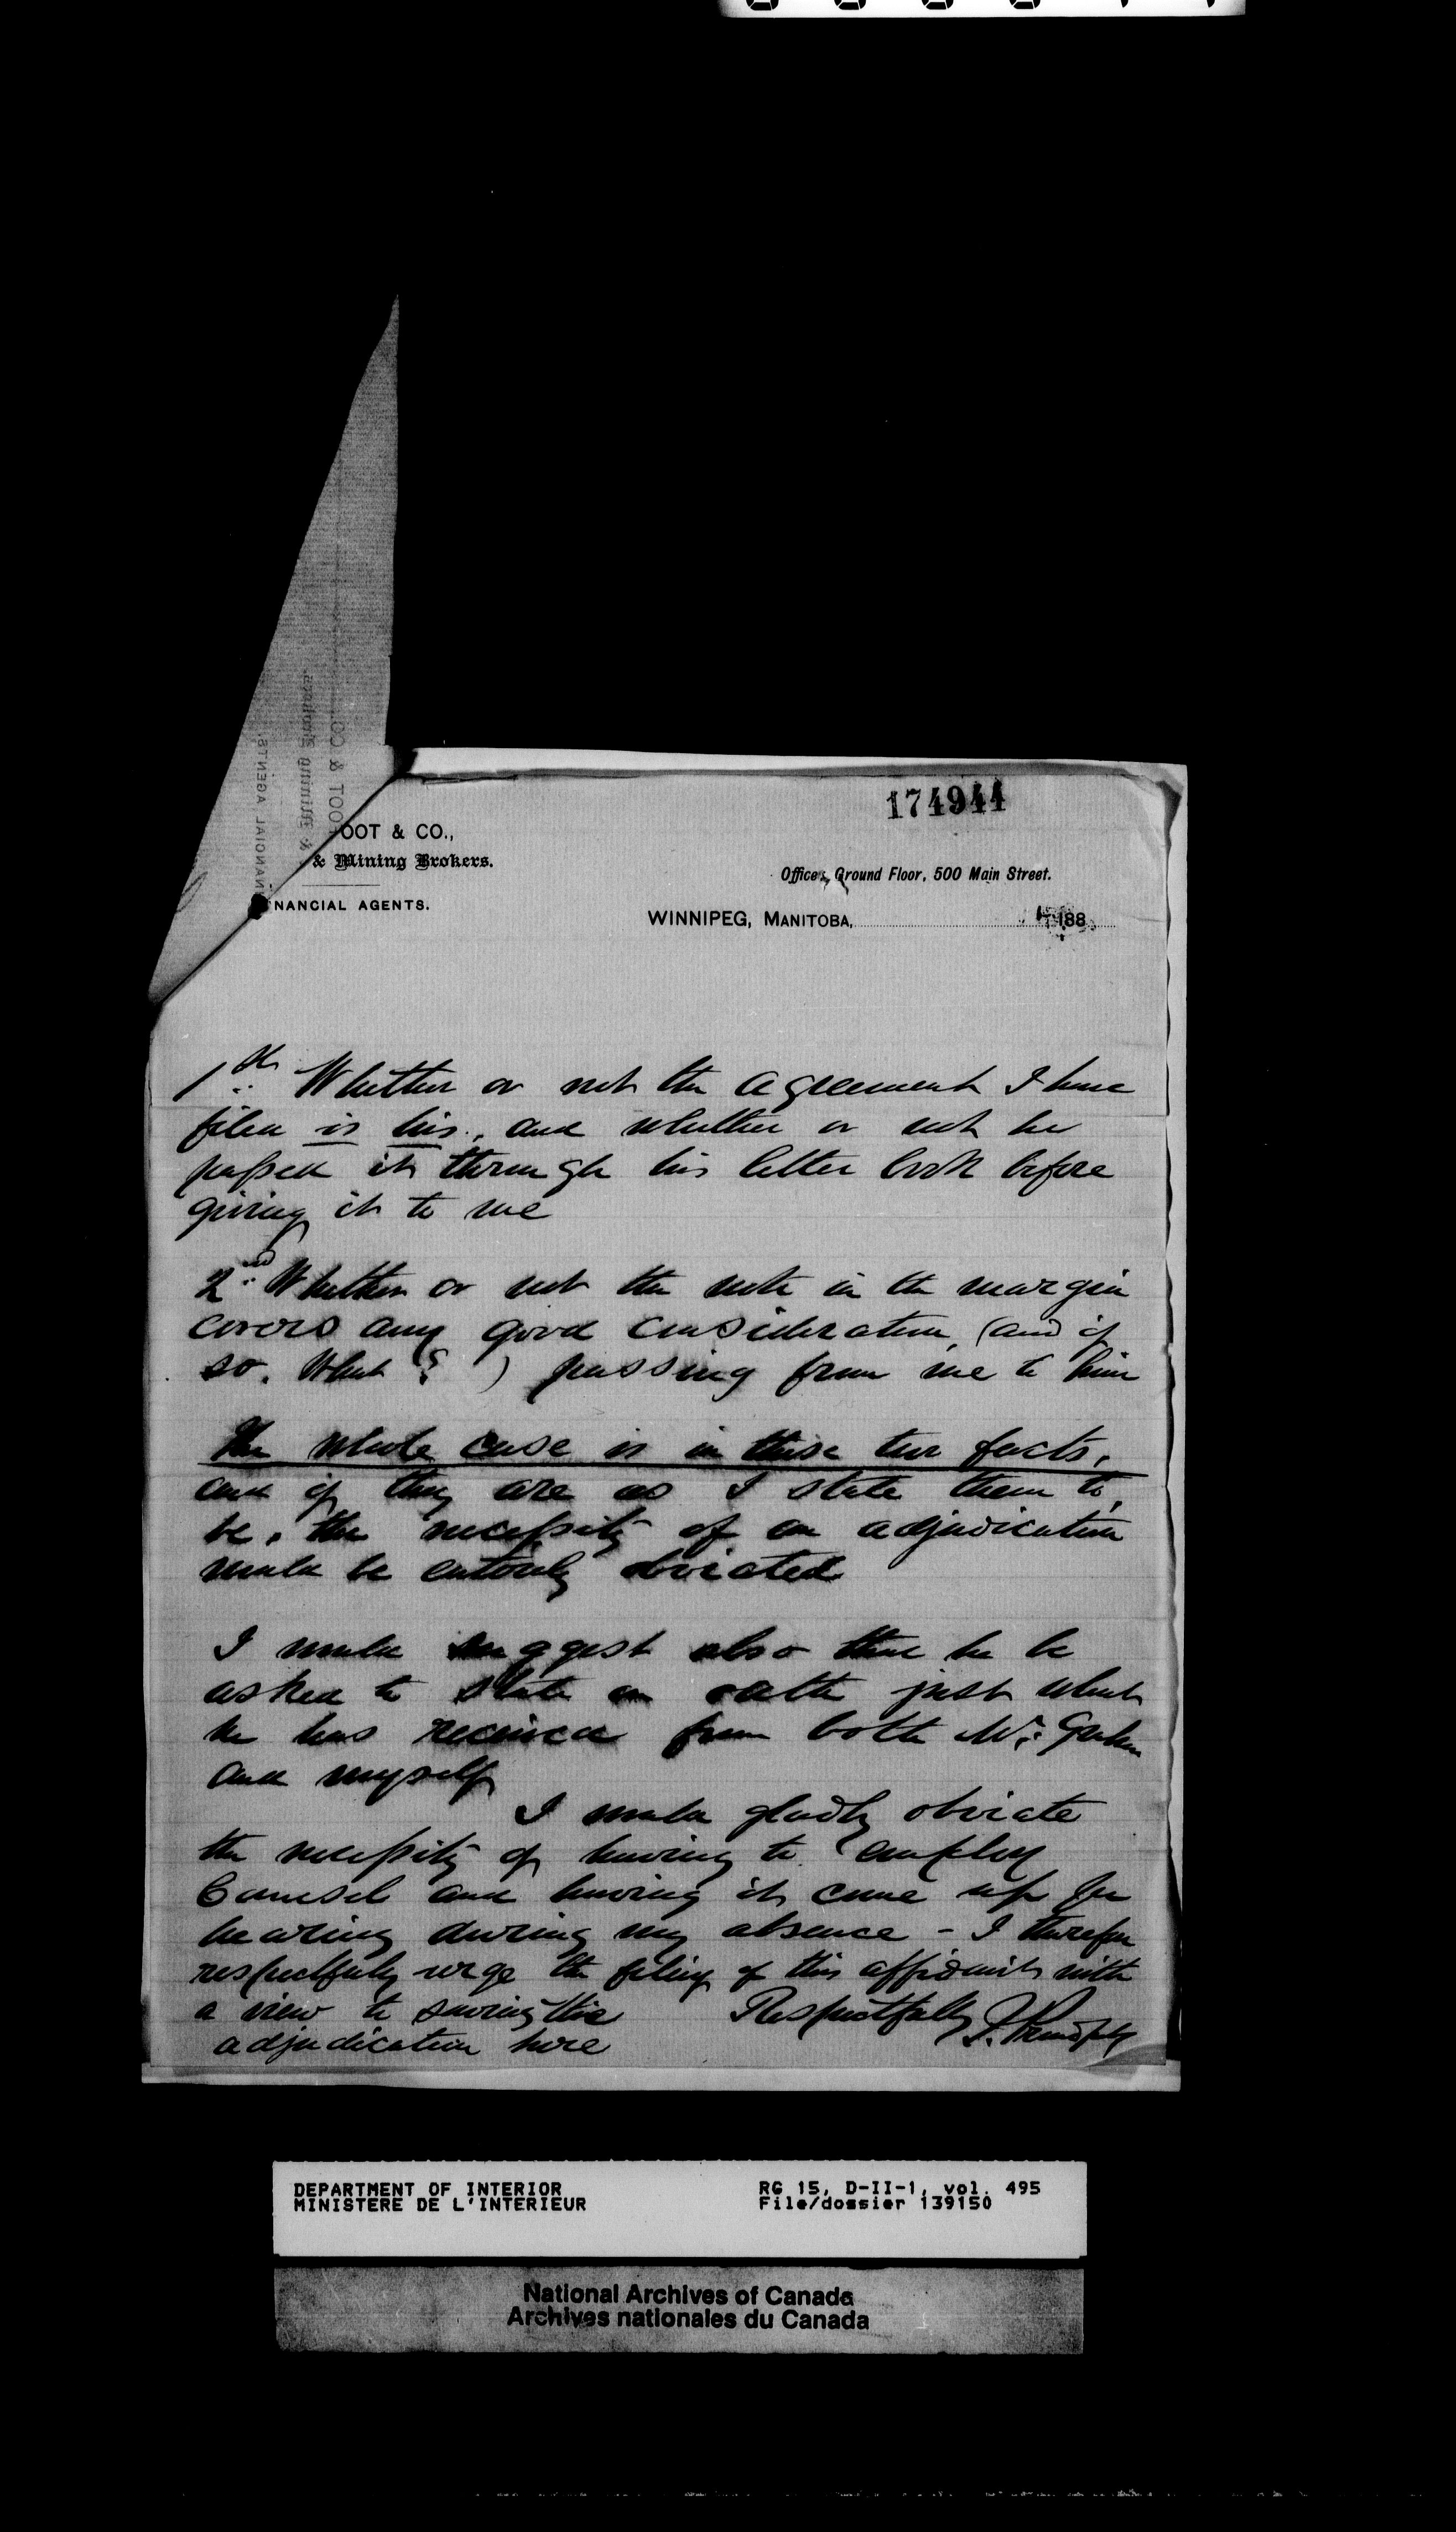 174944
OOT & CO.,
& Mining Brokers.
Offices, Ground Floor, 500 Main Street.
NANCIAL AGENTS.
WINNIPEG, MANITOBA, 188
1st Whether or not the agreement I have
filed is his, and whether or not he
passed it through his letter book before
giving it to me
2nd Whether or not the note in the margin
covers any good consideration (and if
so. What?) passing from me to him
The whole case is in these two facts,
and if they are as I state them to
be, the necessity of an adjudication
would be entirely obviated
I would suggest also that he be
asked to state on oath just what
he has received from both Mr.
and myself
I would gladly obviate
the necessity of having to employ
Counsel and having it come up for
hearing during my absence - I therefore
respectfully urge the filing of this affidavit with
a view to saving this Respectfully
adjudication here
DEPARTMENT OF INTERIOR
MINISTERE DE L'INTERIEUR
RG 15, D-II-1, vol. 495
File/dossier 139150
National Archives of Canada
Archives nationales du Canada